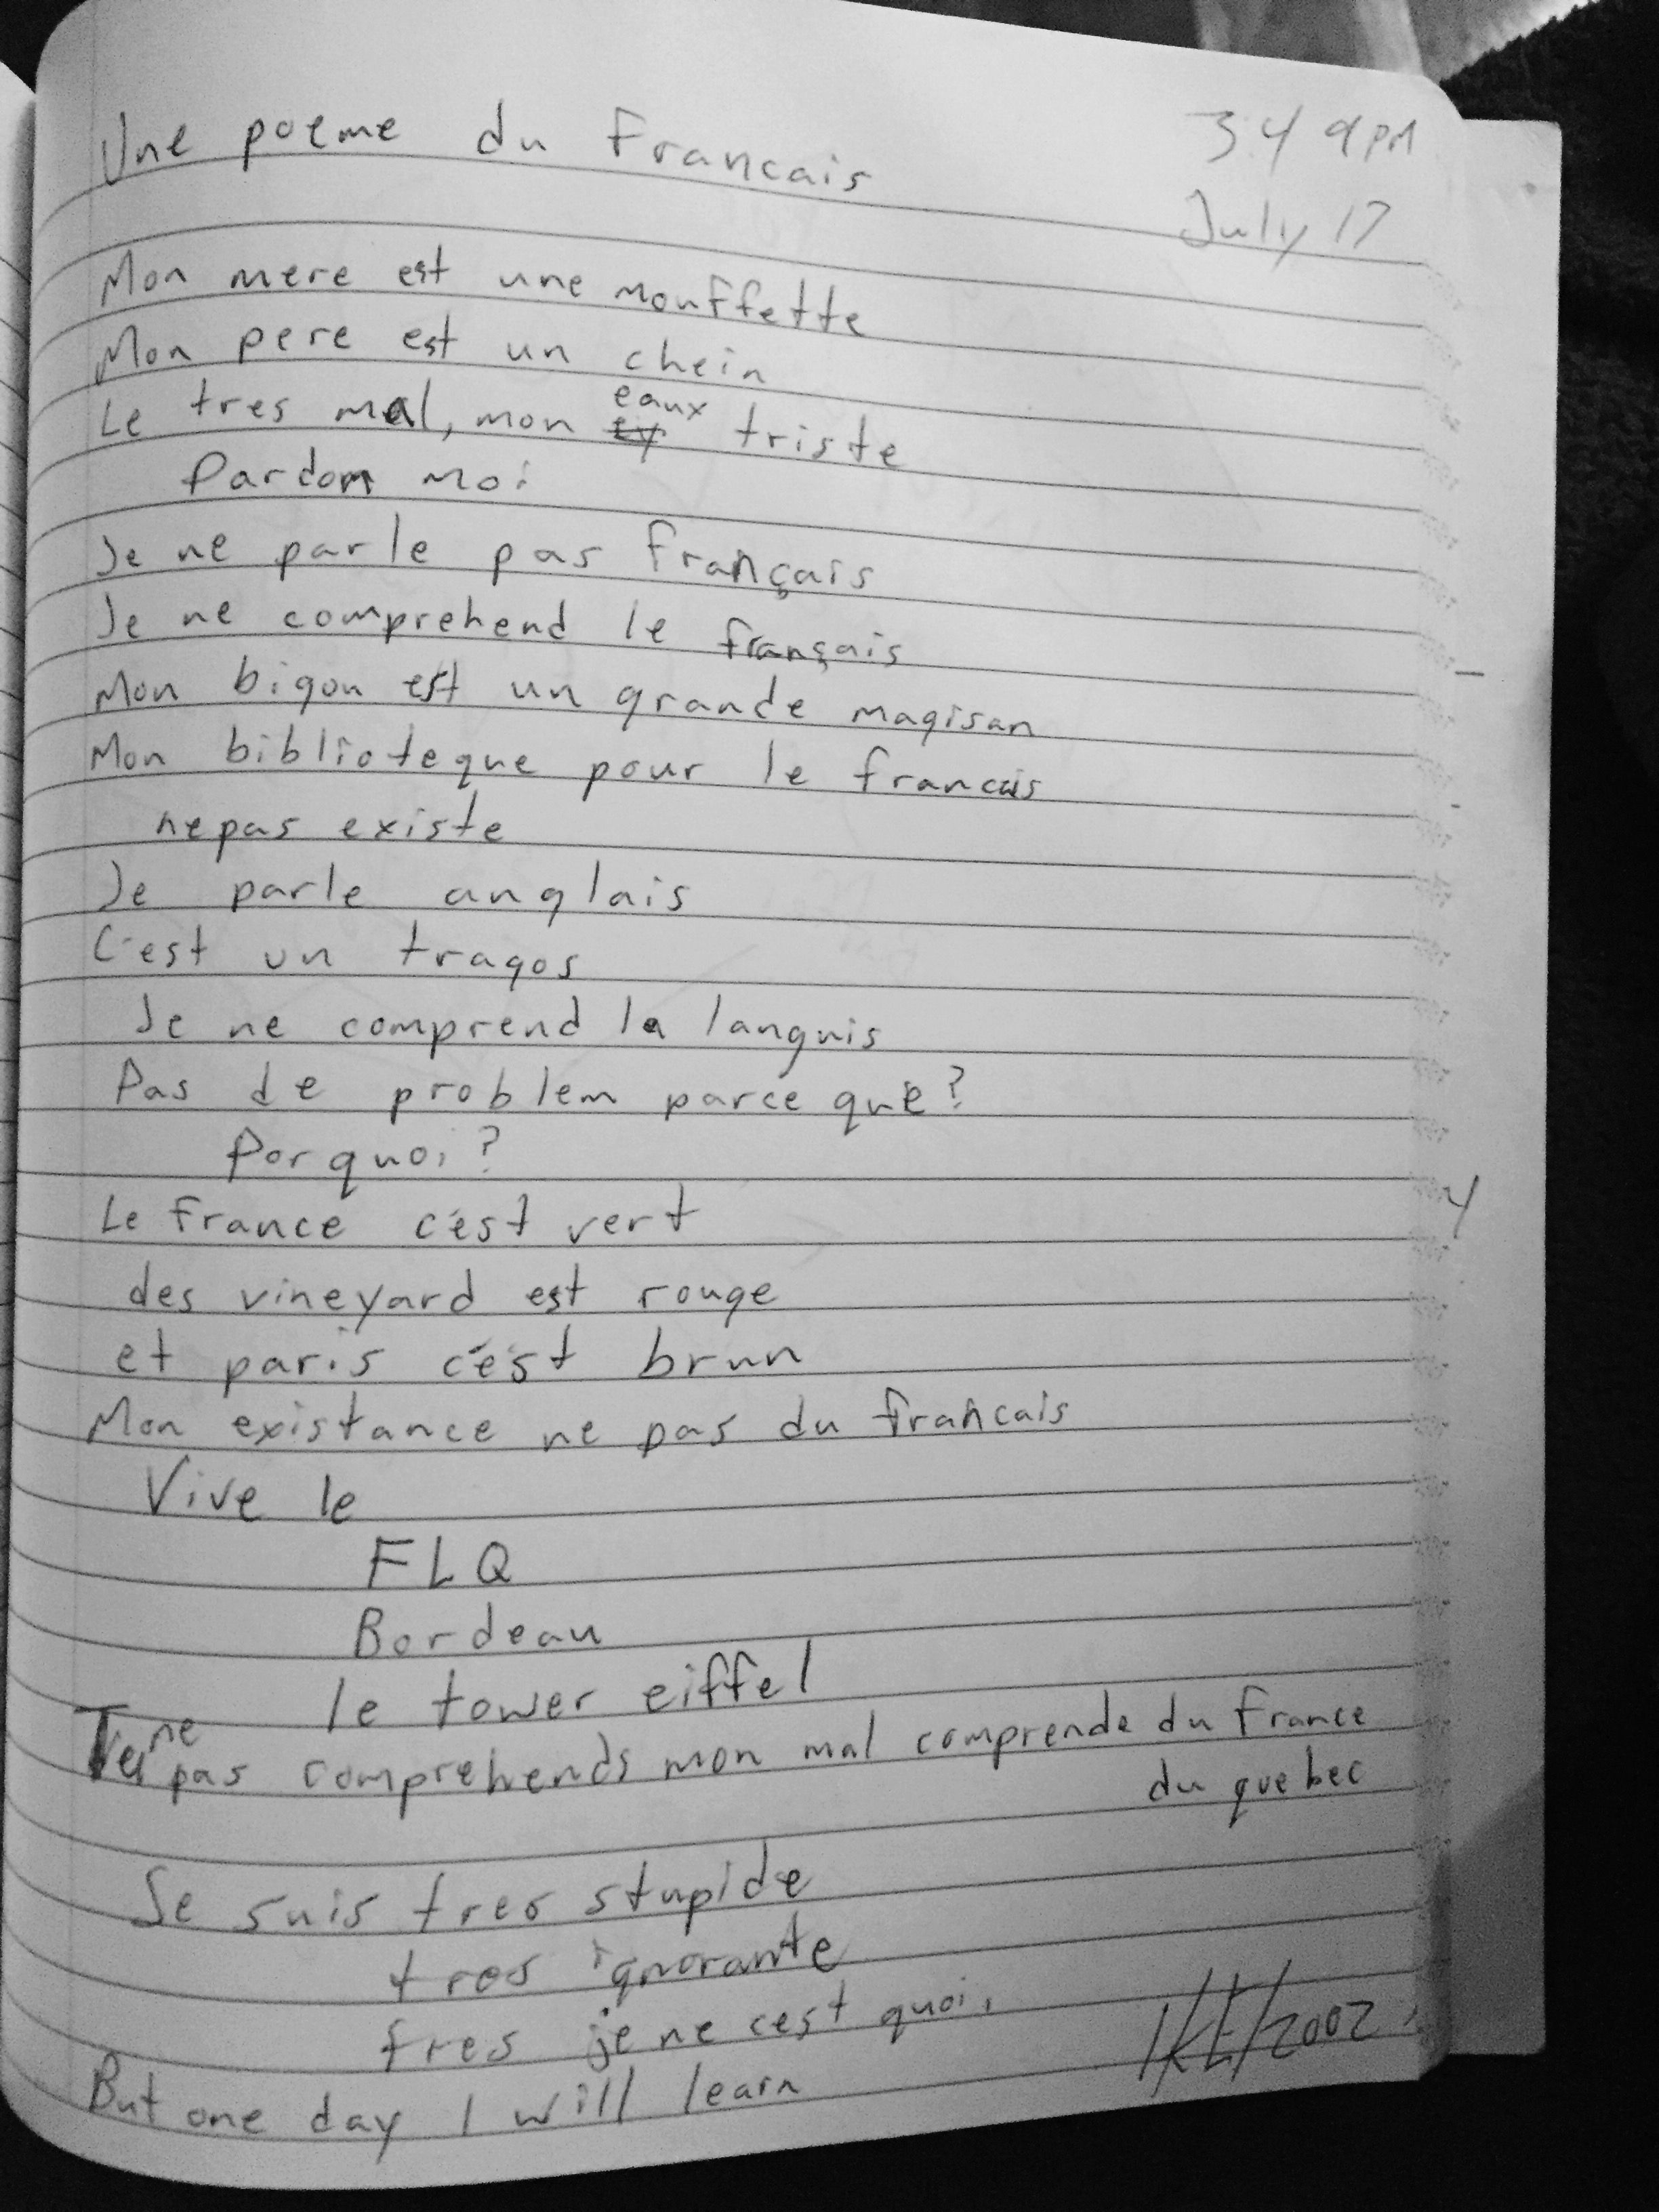 Une poeme du Francais
3:49PM
July 17
Mon mere est une mouffette
Mon pere est un chein
Le tres mal, mon eaux triste
Pardon Moi
Je ne parle pas français
Je ne comprehend le français
Mon bigou est un grande magisan
Mon biblioteque pour le francais
nepas existe
Je parle anglais
C'est un tragos
Je ne comprend la languis
Pas de problem parce que?
Porquoi?
Le France c'est vert
des vineyard est rouge
et paris c'est brun
Mon existance ne pas du francais
Vive le
FLQ
Bordeau
le tower eiffel
ne pas comprehends mon mal comprende du France
du quebec
Je suis tres stupide
tres ignorante
tres je ne cest quoi.
But one day I will learn
2002